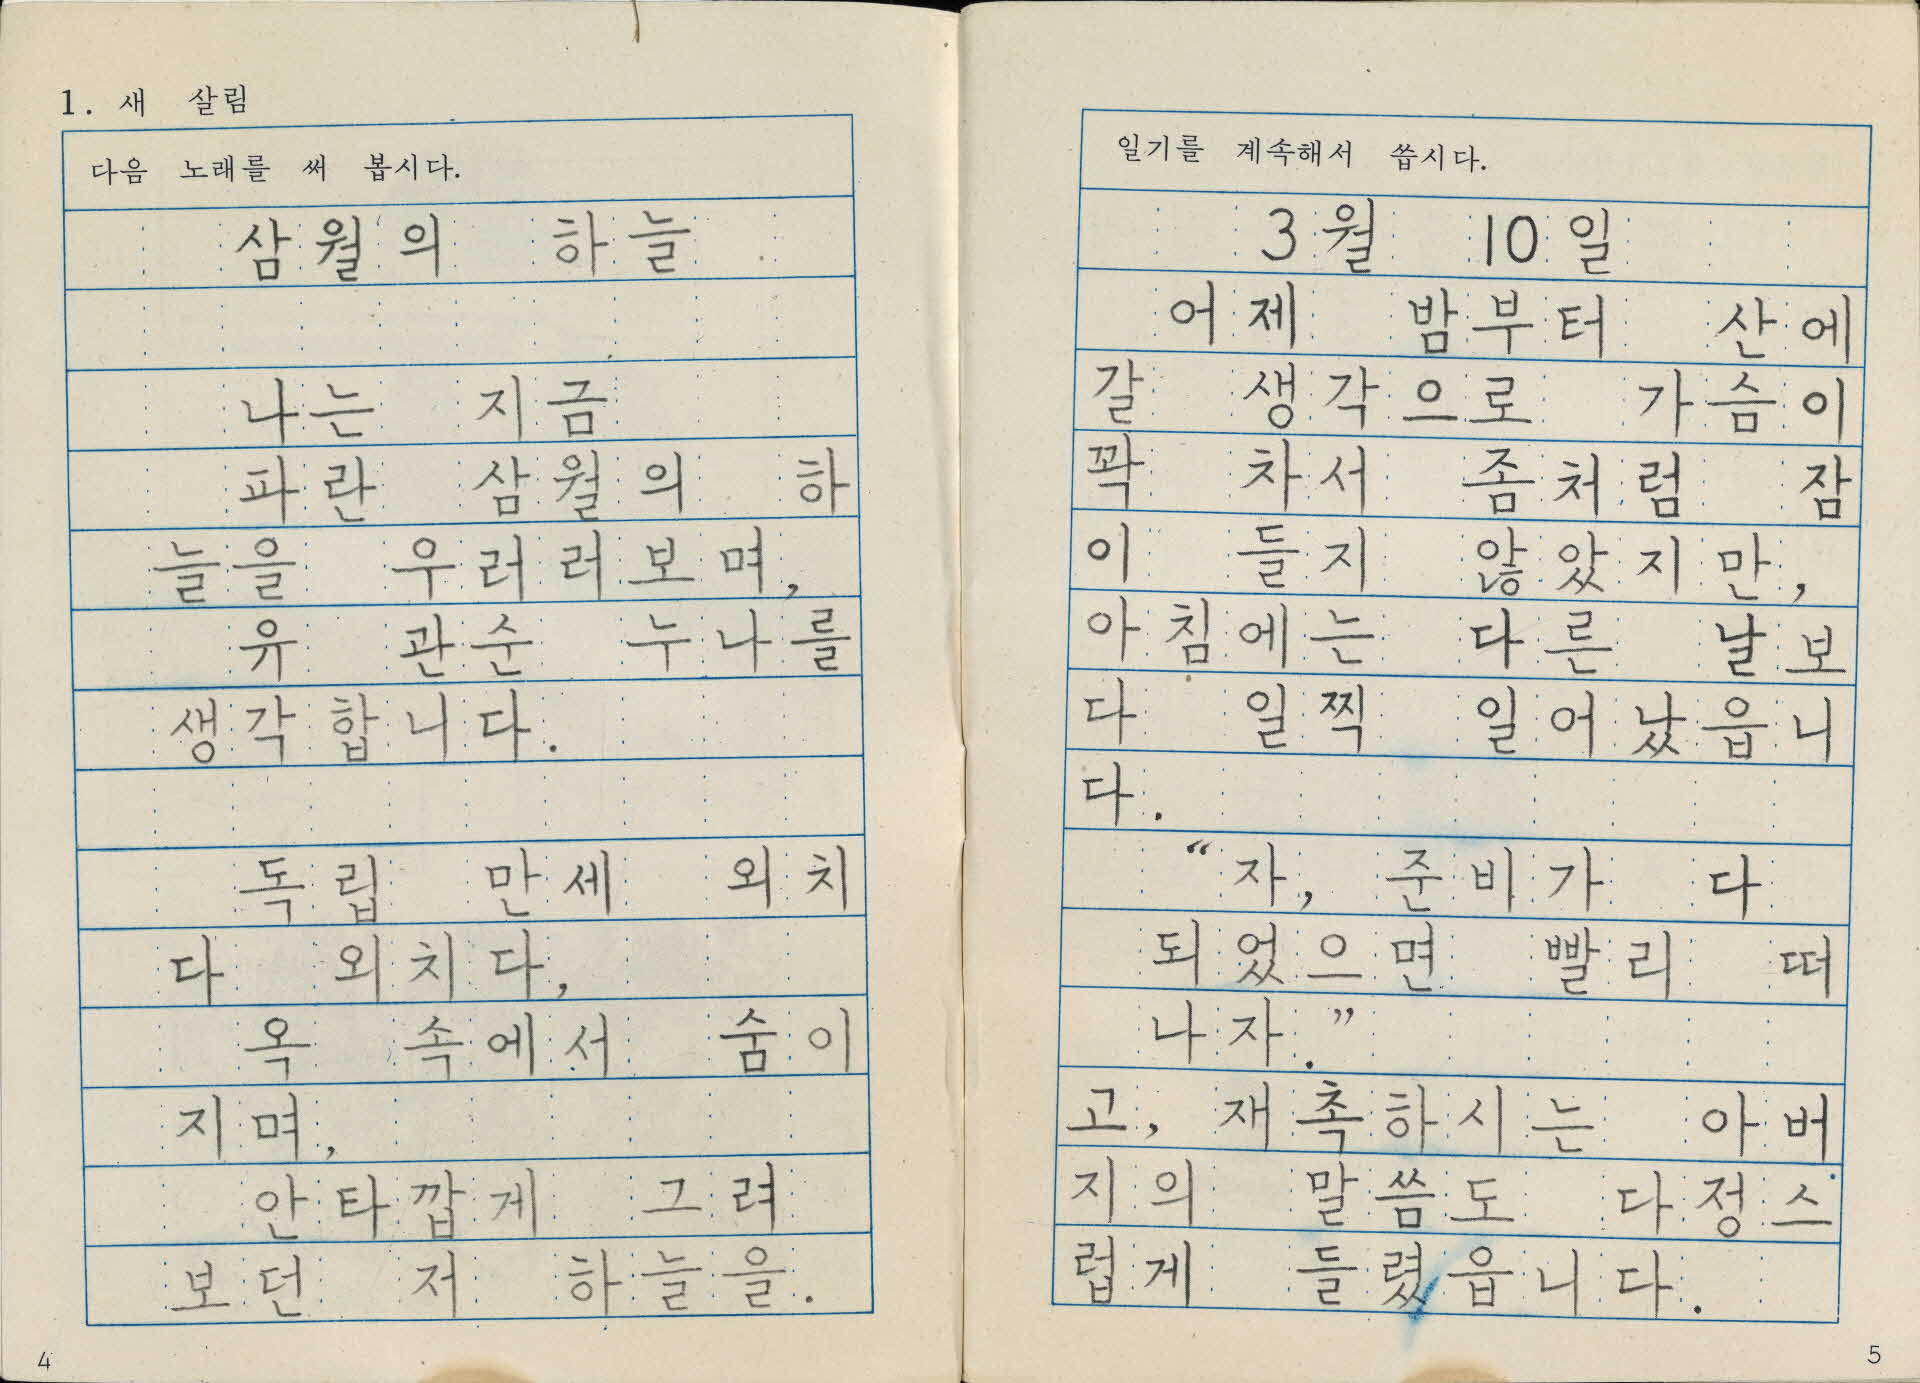 1. 새 살림
다음 노래를 써 봅시다.
삼월의 하늘
나는 지금
파란 삼월의 하
늘을 우러러보며,
유 관순 누나를
생각합니다.
독립 만세 외치
다 외치다,
옥 속에서 숨이
지며,
안타깝게 그려
보던 저 하늘을.
4
일기를 계속해서 씁시다.
3월 10일
어제 밤부터 산에
갈 생각으로 가슴이
꽉 차서 좀처럼 잠
이 들지 않았지만,
아침에는 다른 날보
다 일찍 일어났읍니
다.
“자, 준비가 다
되었으면 빨리 떠
나자.”
고, 재촉하시는 아버
지의 말씀도 다정스
럽게 들렸읍니다.
5